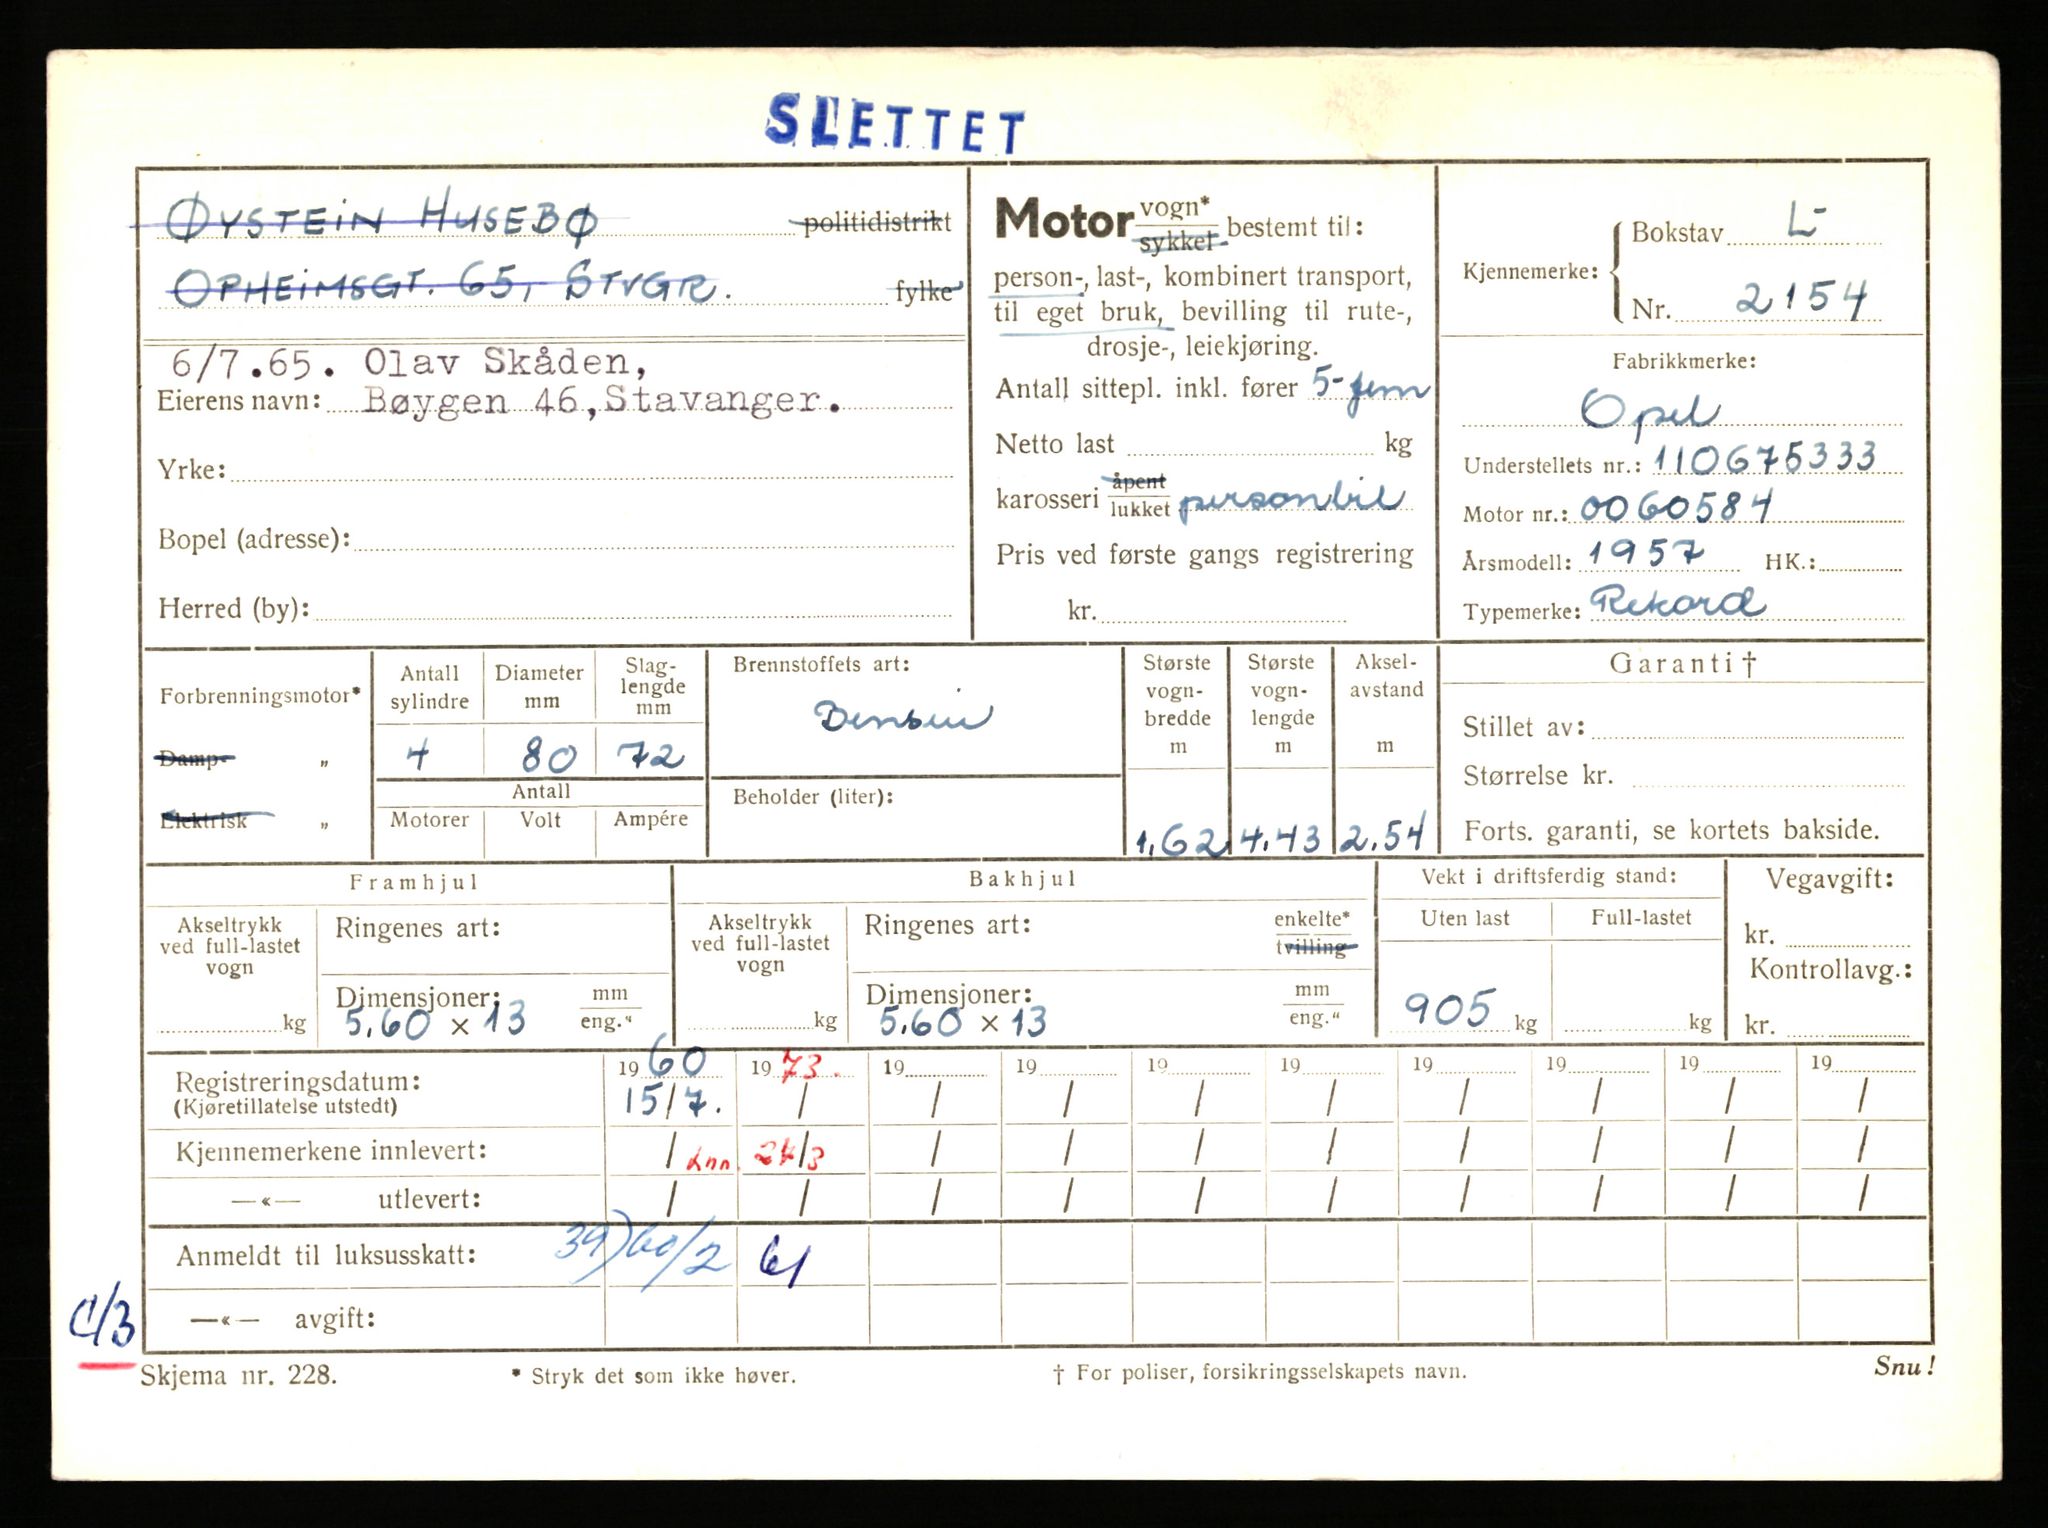 SLETTET
ØYSTEIN HUSEBØ politidistrikt
OPHEIMSGT. 65, STVGR. fylke
6/7.65. Olav Skåden,
Eierens navn: Bøygen 46, Stavanger.
Yrke:
Bopel (adresse):
Herred (by):
Motor vogn* sykkel bestemt til:
person-, last-, kombinert transport,
til eget bruk, bevilling til rute-,
drosje-, leiekjøring.
Antall sittepl. inkl. fører 5-fem
Netto last kg
karosseri åpent lukket personbil
Pris ved første gangs registrering
kr.
Kjennemerke: Bokstav L-
Nr. 2154
Fabrikkmerke:
Opel
Understellets nr.: 110675333
Motor nr.: 0060584
Årsmodell: 1957 HK.:
Typemerke: Rekord
Forbrenningsmotor*
Damp- „
Elektrisk „
Antall sylindre
4
Diameter mm
80
Slag-lengde mm
72
Antall
Motorer Volt Ampére
Brennstoffets art:
Bensin
Beholder (liter):
Største vogn-bredde m
1.62
Største vogn-lengde m
4.43
Aksel-avstand m
2.54
Garanti †
Stillet av:
Størrelse kr.
Forts. garanti, se kortets bakside.
Framhjul
Akseltrykk ved full-lastet vogn
kg
Ringenes art:
Dimensjoner: mm eng."
5.60 x 13
Bakhjul
Akseltrykk ved full-lastet vogn
kg
Ringenes art: enkelte* tvilling
Dimensjoner: mm eng."
5.60 x 13
Vekt i driftsferdig stand:
Uten last Full-lastet
905 kg kg
Vegavgift:
kr.
Kontrollavg.:
kr.
19 60 19 73. 19 19 19 19 19 19 19 19
Registreringsdatum: 15/7. / / / / / / / / /
(Kjøretillatelse utstedt)
Kjennemerkene innlevert: / Inn. 24/3 / / / / / / / /
—«— utlevert: / / / / / / / / / /
Anmeldt til luksusskatt: 39) 60/2 61
—«— avgift:
C/3
Skjema nr. 228. * Stryk det som ikke høver. † For poliser, forsikringsselskapets navn. Snu!